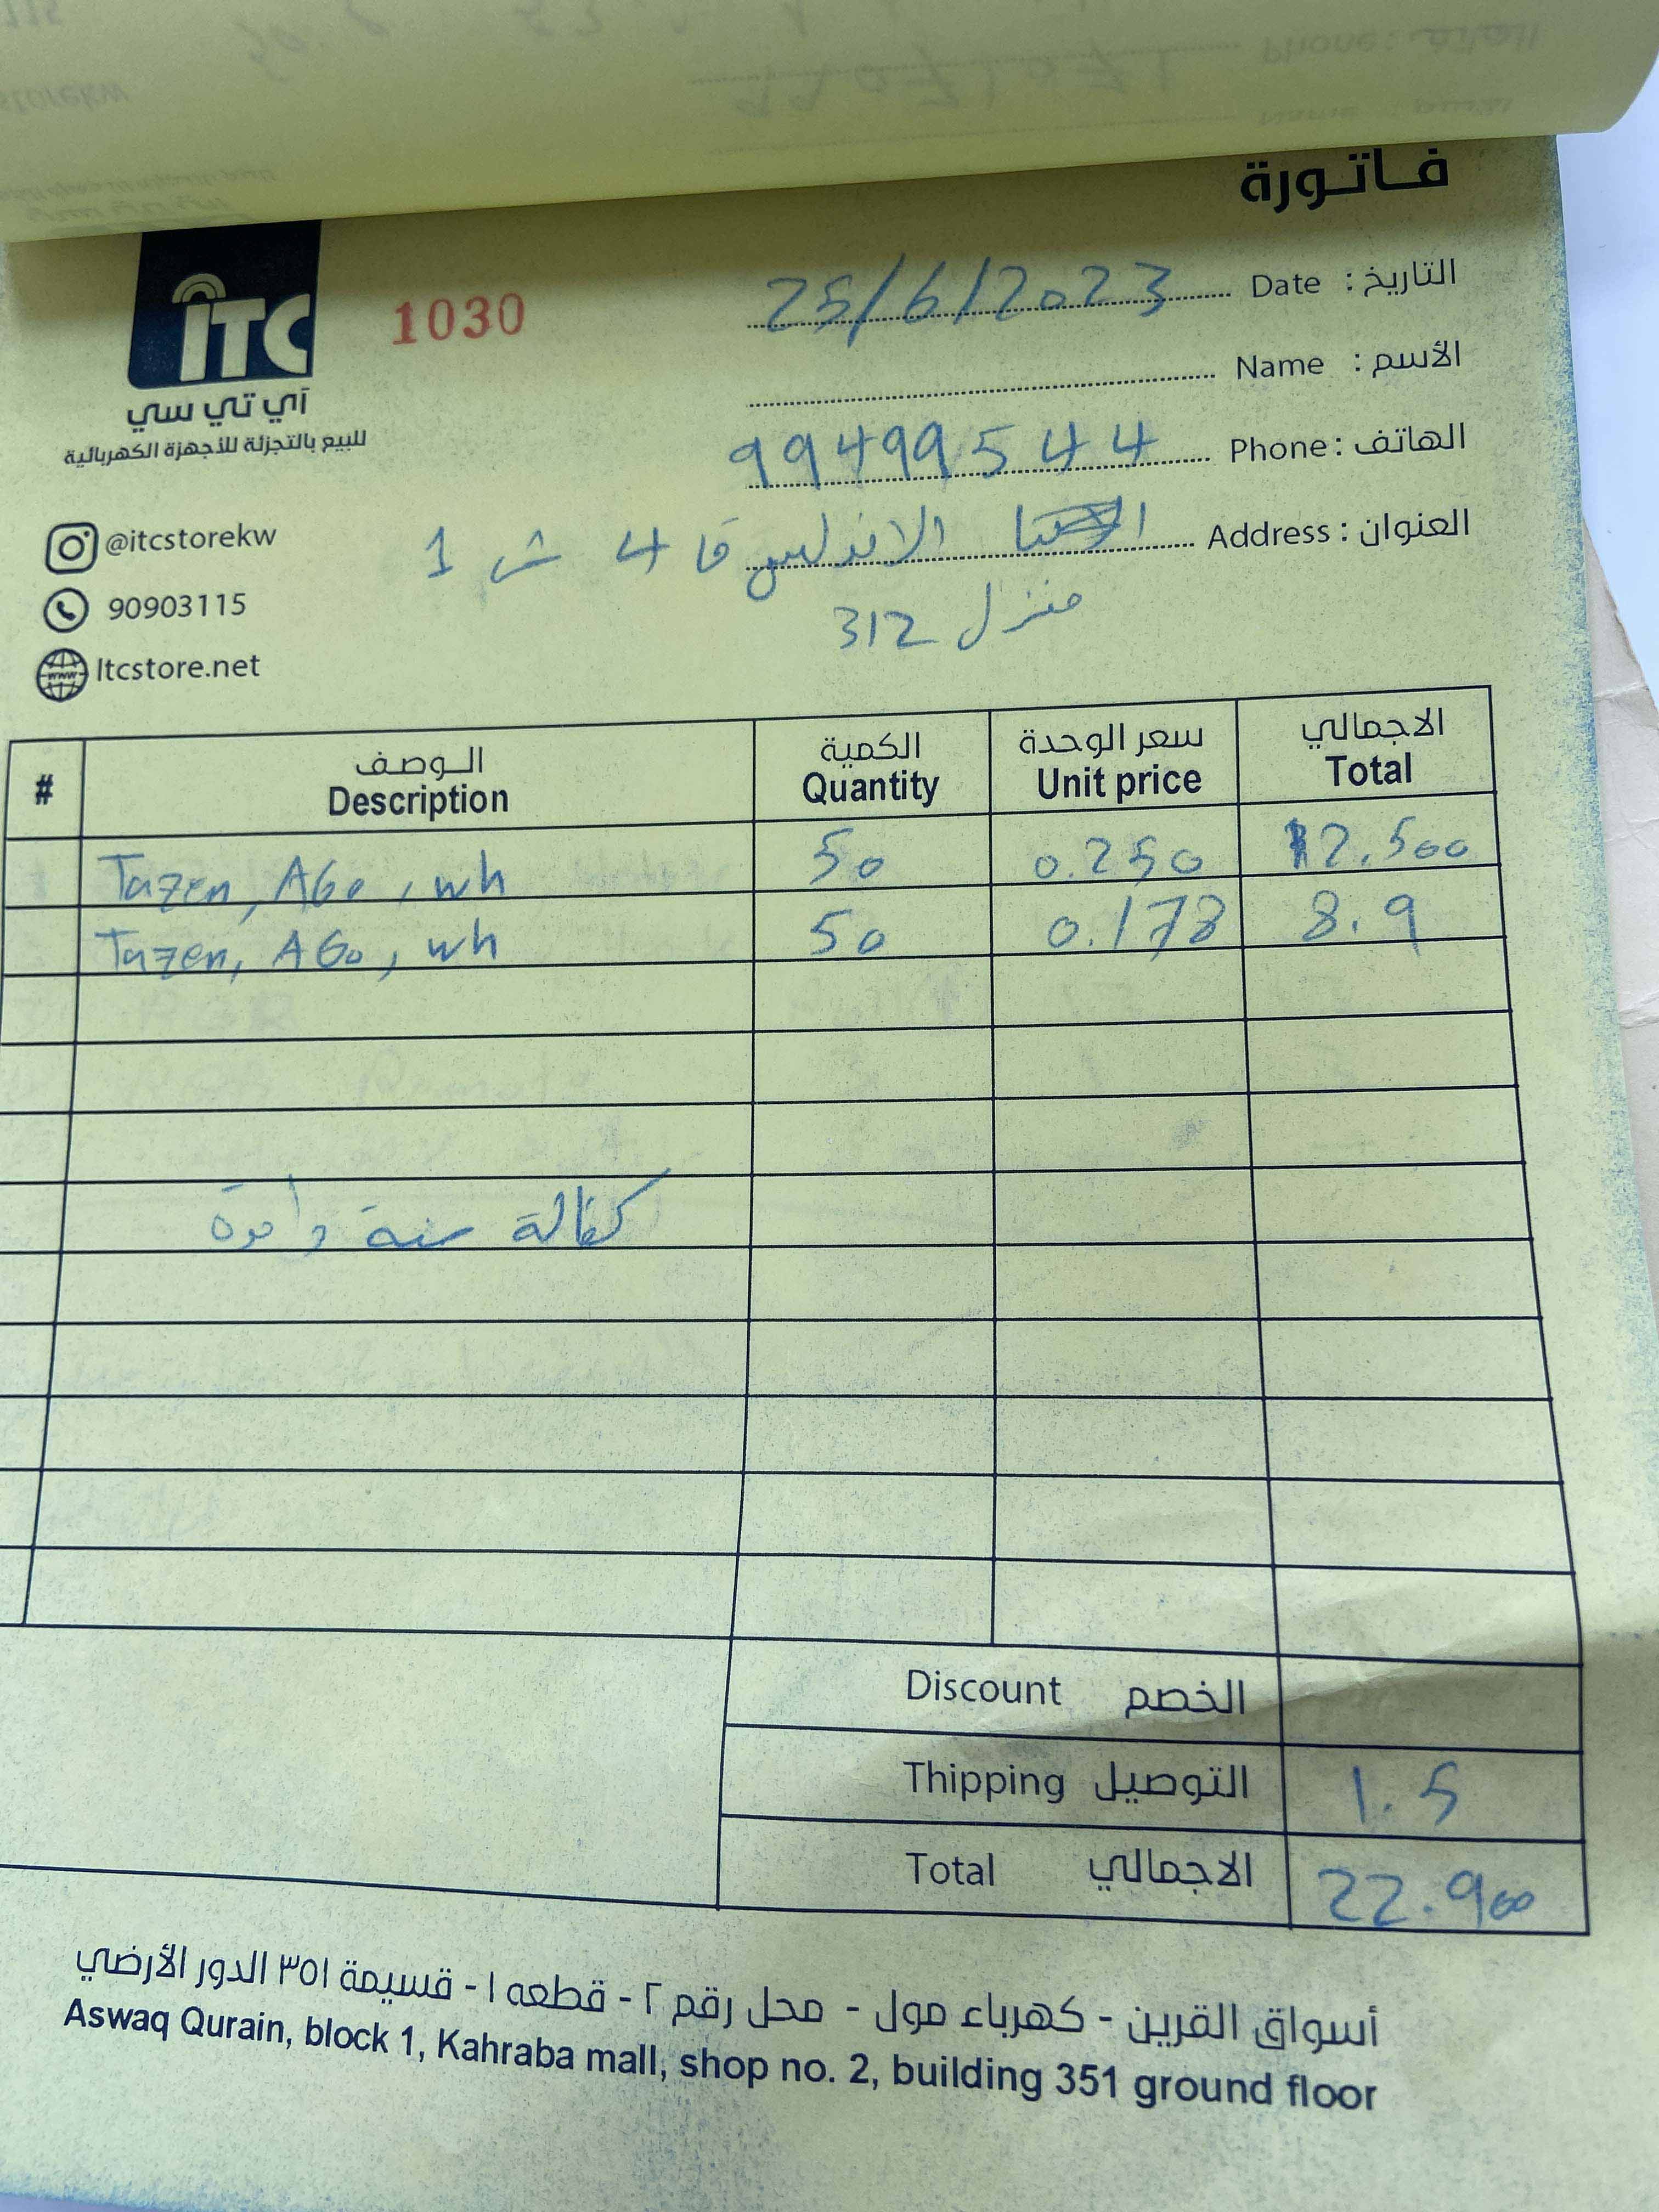 فاتورة
iTC
آي تي سي
للبيع بالتجزئة للأجهزة الكهربائية
1030
التاريخ : Date 25/6/2023
الأسم : Name
الهاتف : Phone 99499544
العنوان : Address الاندلس ق 4 ش 1
منزل 312
@itcstorekw
90903115
Itcstore.net
# الوصف الكمية سعر الوحدة الاجمالي
Description Quantity Unit price Total
Tazen, A60, wh 50 0.250 12.500
Tazen, A60, wh 50 0.178 8.9
كفالة سنة واحدة
Discount الخصم
Thipping التوصيل 1.5
Total الاجمالي 22.900
أسواق القرين - كهرباء مول - محل رقم ٢ - قطعه ١ - قسيمة ٣٥١ الدور الأرضي
Aswaq Qurain, block 1, Kahraba mall, shop no. 2, building 351 ground floor